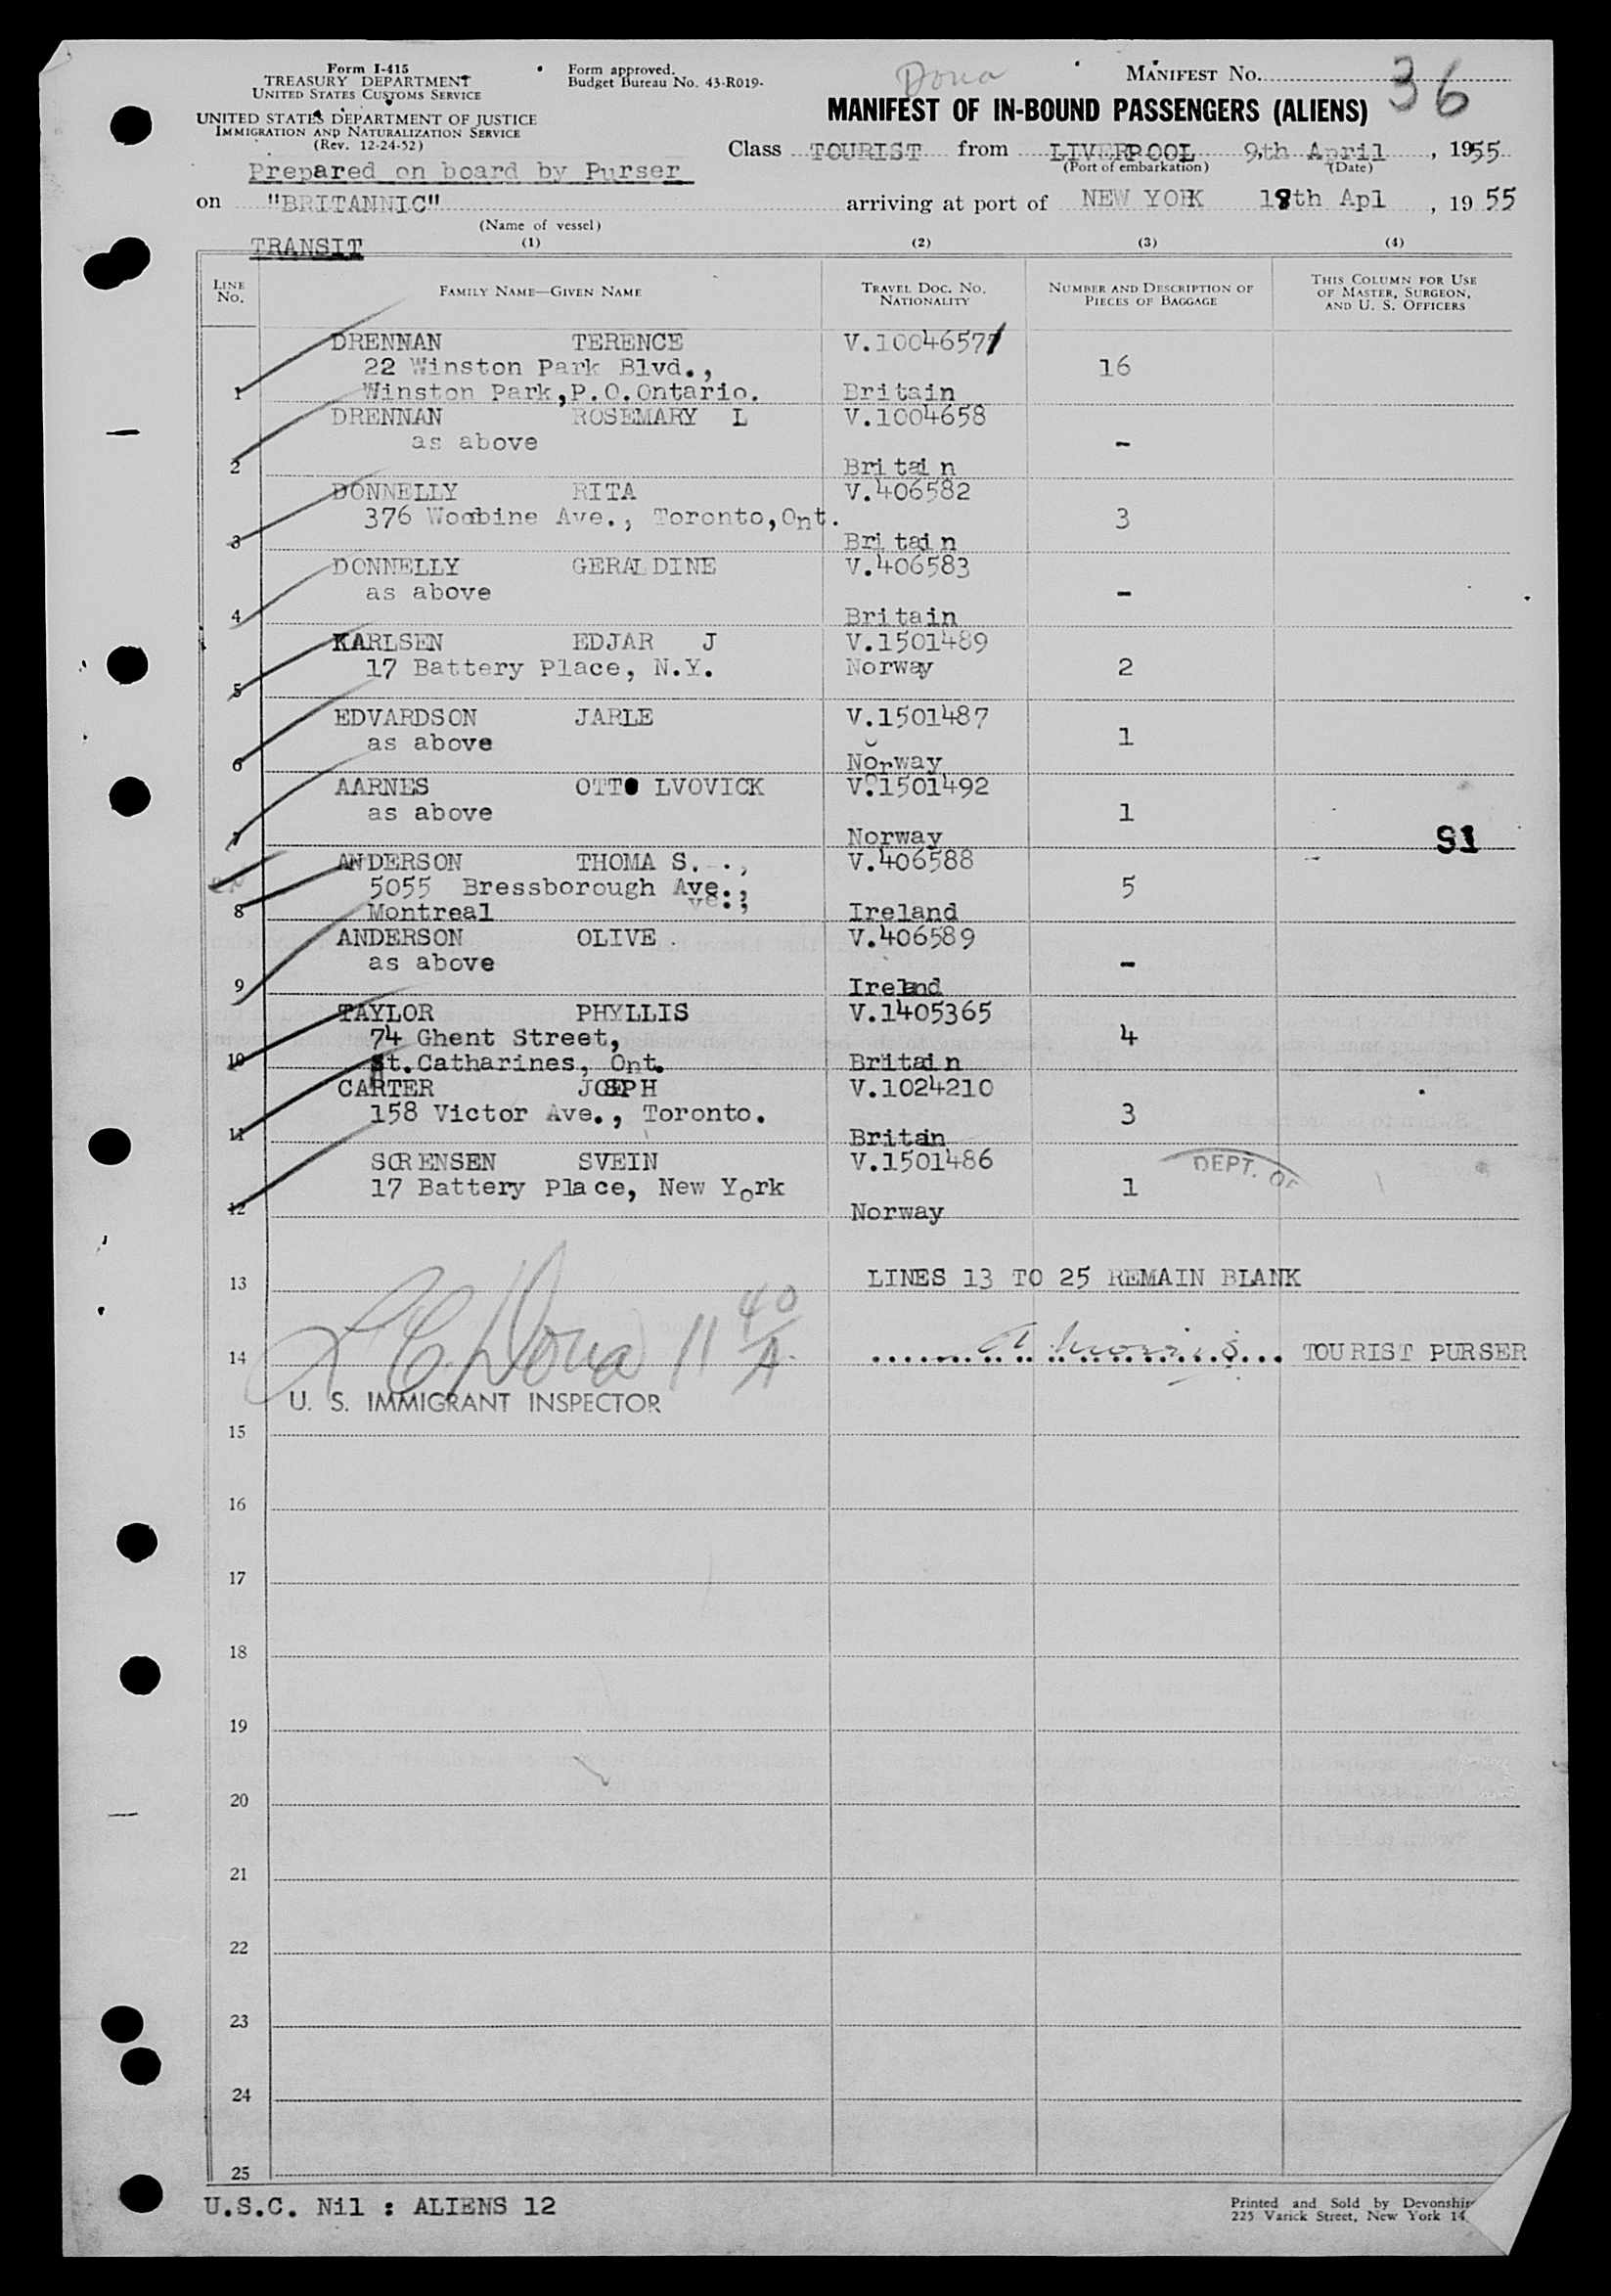 Form I-415
TREASURY DEPARTMENT
UNITED STATES CUSTOMS SERVICE
UNITED STATES DEPARTMENT OF JUSTICE
IMMIGRATION AND NATURALIZATION SERVICE
(Rev. 12-24-52)
Form approved.
Budget Bureau No. 43-R019-
Dona
MANIFEST No. 36
MANIFEST OF IN-BOUND PASSENGERS (ALIENS)
Class TOURIST from LIVERPOOL 9th April, 1955
(Port of embarkation) (Date)
Prepared on board by Purser
on "BRITANNIC" arriving at port of NEW YORK 18th Apl, 1955
(Name of vessel)
TRANSIT (1) (2) (3) (4)
LINE No. FAMILY NAME—GIVEN NAME TRAVEL DOC. NO. NATIONALITY NUMBER AND DESCRIPTION OF PIECES OF BAGGAGE THIS COLUMN FOR USE OF MASTER, SURGEON, AND U. S. OFFICERS
DRENNAN TERENCE V.1004657
22 Winston Park Blvd., 16
1 Winston Park,P.O.Ontario. Britain
DRENNAN ROSEMARY L V.1004658
as above -
2 Britain
DONNELLY RITA V.406582
376 Woodbine Ave., Toronto,Ont. 3
3 Britain
DONNELLY GERALDINE V.406583
as above -
4 Britain
KARLSEN EDJAR J V.1501489
17 Battery Place, N.Y. Norway 2
5
EDVARDSON JARLE V.1501487
as above 1
6 Norway
AARNES OTTO LVOVICK V.1501492
as above 1
7 Norway S1
ANDERSON THOMA S. V.406588
5055 Bressborough Ave., 5
8 Montreal Ireland
ANDERSON OLIVE V.406589
as above -
9 Ireland
TAYLOR PHYLLIS V.1405365
74 Ghent Street, 4
10 St.Catharines, Ont. Britain
CARTER JOSEPH V.1024210
158 Victor Ave., Toronto. 3
11 Britain
SORENSEN SVEIN V.1501486 DEPT. OF
17 Battery Place, New York 1
12 Norway
13 LINES 13 TO 25 REMAIN BLANK
14 Dona 11 40 A TOURIST PURSER
U. S. IMMIGRANT INSPECTOR
15
16
17
18
19
20
21
22
23
24
25
U.S.C. Nil : ALIENS 12
Printed and Sold by
225 Varick Street, New York 14